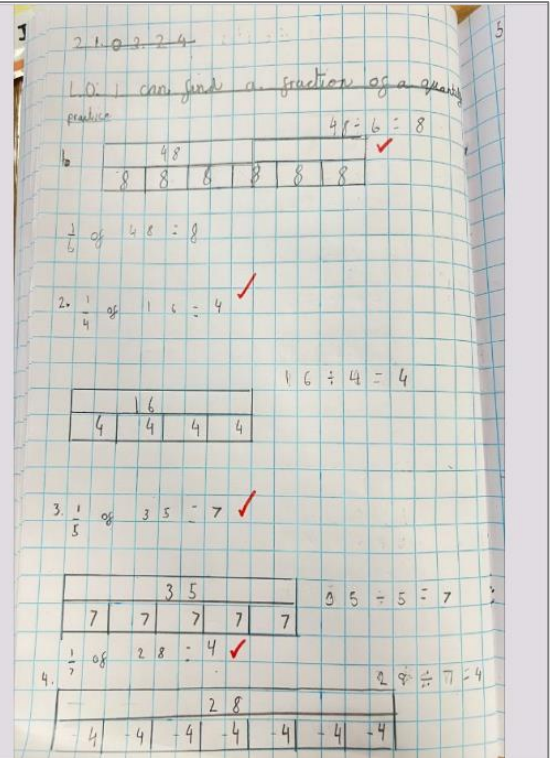 21.03.24
L.O: I can find a fraction of a quantity
practice
48 ÷ 6 = 8
1.
48
8 8 8 8 8 8
1/6 of 48 = 8
2. 1/4 of 16 = 4
16 ÷ 4 = 4
16
4 4 4 4
3. 1/5 of 35 = 7
35
35 ÷ 5 = 7
7 7 7 7 7
4. 1/7 of 28 = 4
28 ÷ 7 = 4
28
4 4 4 4 4 4 4